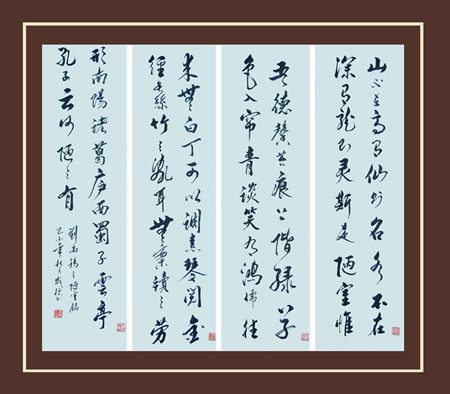 山不在高有仙則名水不在
深有龍則灵斯是陋室惟
吾德馨苔痕上階綠草
色入帘青談笑有鴻儒往
来無白丁可以調素琴閱金
經無絲竹之亂耳無案牘之勞
形南陽諸葛庐西蜀子雲亭
孔子云何陋之有
劉禹錫之陋室銘
乙未年秋月